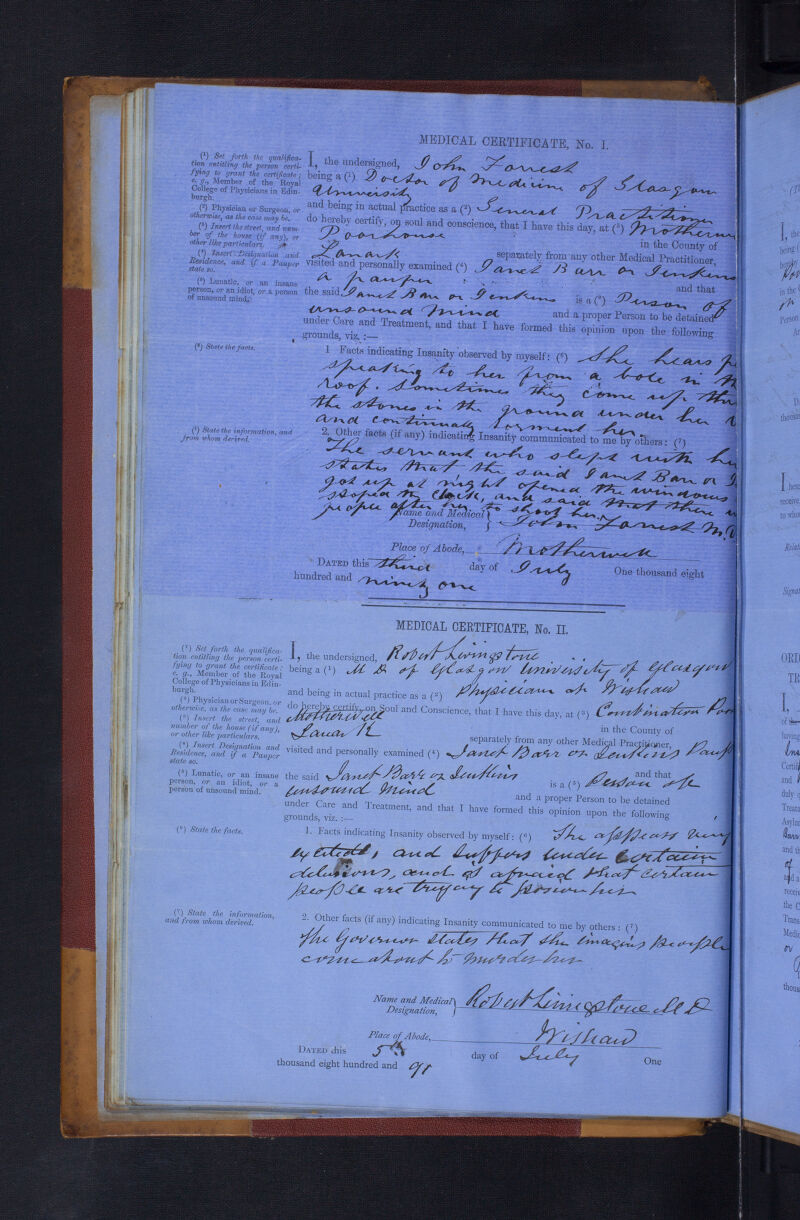 MEDICAL CERTIFICATE, No. I.
(¹) Set forth the qualifica-
tion entitling the person certi-
fying to grant the certificate;
e. g., Member of the Royal
College of Physicians in Edin-
burgh.
(²) Physician or Surgeon, or
otherwise, as the case may be.
(³) Insert the street, and num-
ber of the house (if any), or
other like particulars.
(⁴) Insert Designation and
Residence, and if a Pauper
state so.
(⁵) Lunatic, or an insane
person, or an idiot, or a person
of unsound mind.
(⁶) State the facts.
(⁷) State the information, and
from whom derived.
I, the undersigned, John Forrest
being a (¹) Doctor of Medicine of Glasgow
University
and being in actual practice as a (²) General Practitioner
do hereby certify, on soul and conscience, that I have this day, at (³) Motherwe
Poorhouse in the County of
Lanark separately from any other Medical Practitioner,
visited and personally examined (⁴) Janet Barr or Jenkins
a pauper and that
the said Janet Barr or Jenkins is a (⁵) Person of
unsound mind and a proper Person to be detained
under Care and Treatment, and that I have formed this opinion upon the following
grounds, viz. :—
1 Facts indicating Insanity observed by myself: (⁶) She hears p
speaking to her from a hole in th
roof. Sometimes they come up thro
the stones in the ground under her
and continually torment her.
2. Other facts (if any) indicating Insanity communicated to me by others: (⁷)
The servant who slept with her
states that the said Janet Barr or J
got up at night opened the windows
stoped the clock, and said that there
people after her to shoot her.
Name and Medical Designation, John Forrest M.D
Place of Abode, Motherwell
DATED this third day of July One thousand eight
hundred and ninety one
MEDICAL CERTIFICATE, No. II.
(¹) Set forth the qualifica-
tion entitling the person certi-
fying to grant the certificate:
e. g., Member of the Royal
College of Physicians in Edin-
burgh.
(²) Physician or Surgeon, or
otherwise, as the case may be.
(³) Insert the street, and
number of the house (if any),
or other like particulars.
(⁴) Insert Designation and
Residence, and if a Pauper
state so.
(⁵) Lunatic, or an insane
person, or an idiot, or a
person of unsound mind.
(⁶) State the facts.
(⁷) State the information,
and from whom derived.
I, the undersigned, Robert Livingstone
being a (¹) M D of Glasgow University of Glasgow
and being in actual practice as a (²) Physician at Wishaw
do hereby certify, on Soul and Conscience, that I have this day, at (³) Combination Poor
Motherwell in the County of
Lanark separately from any other Medical Practitioner,
visited and personally examined (⁴) Janet Barr or Jenkins Paup
and that
the said Janet Barr or Jenkins is a (⁵) Person of
unsound mind and a proper Person to be detained
under Care and Treatment, and that I have formed this opinion upon the following
grounds, viz. :—
1. Facts indicating Insanity observed by myself: (⁶) She appears very
excited, and suffers under certain
delusions, and is afraid that certain
people are trying to poison her
2. Other facts (if any) indicating Insanity communicated to me by others: (⁷)
The Governor states that she imagines people
come about to murder her
Name and Medical Designation, Robert Livingstone M D
Place of Abode, Wishaw
DATED this 5th day of July One
thousand eight hundred and 91